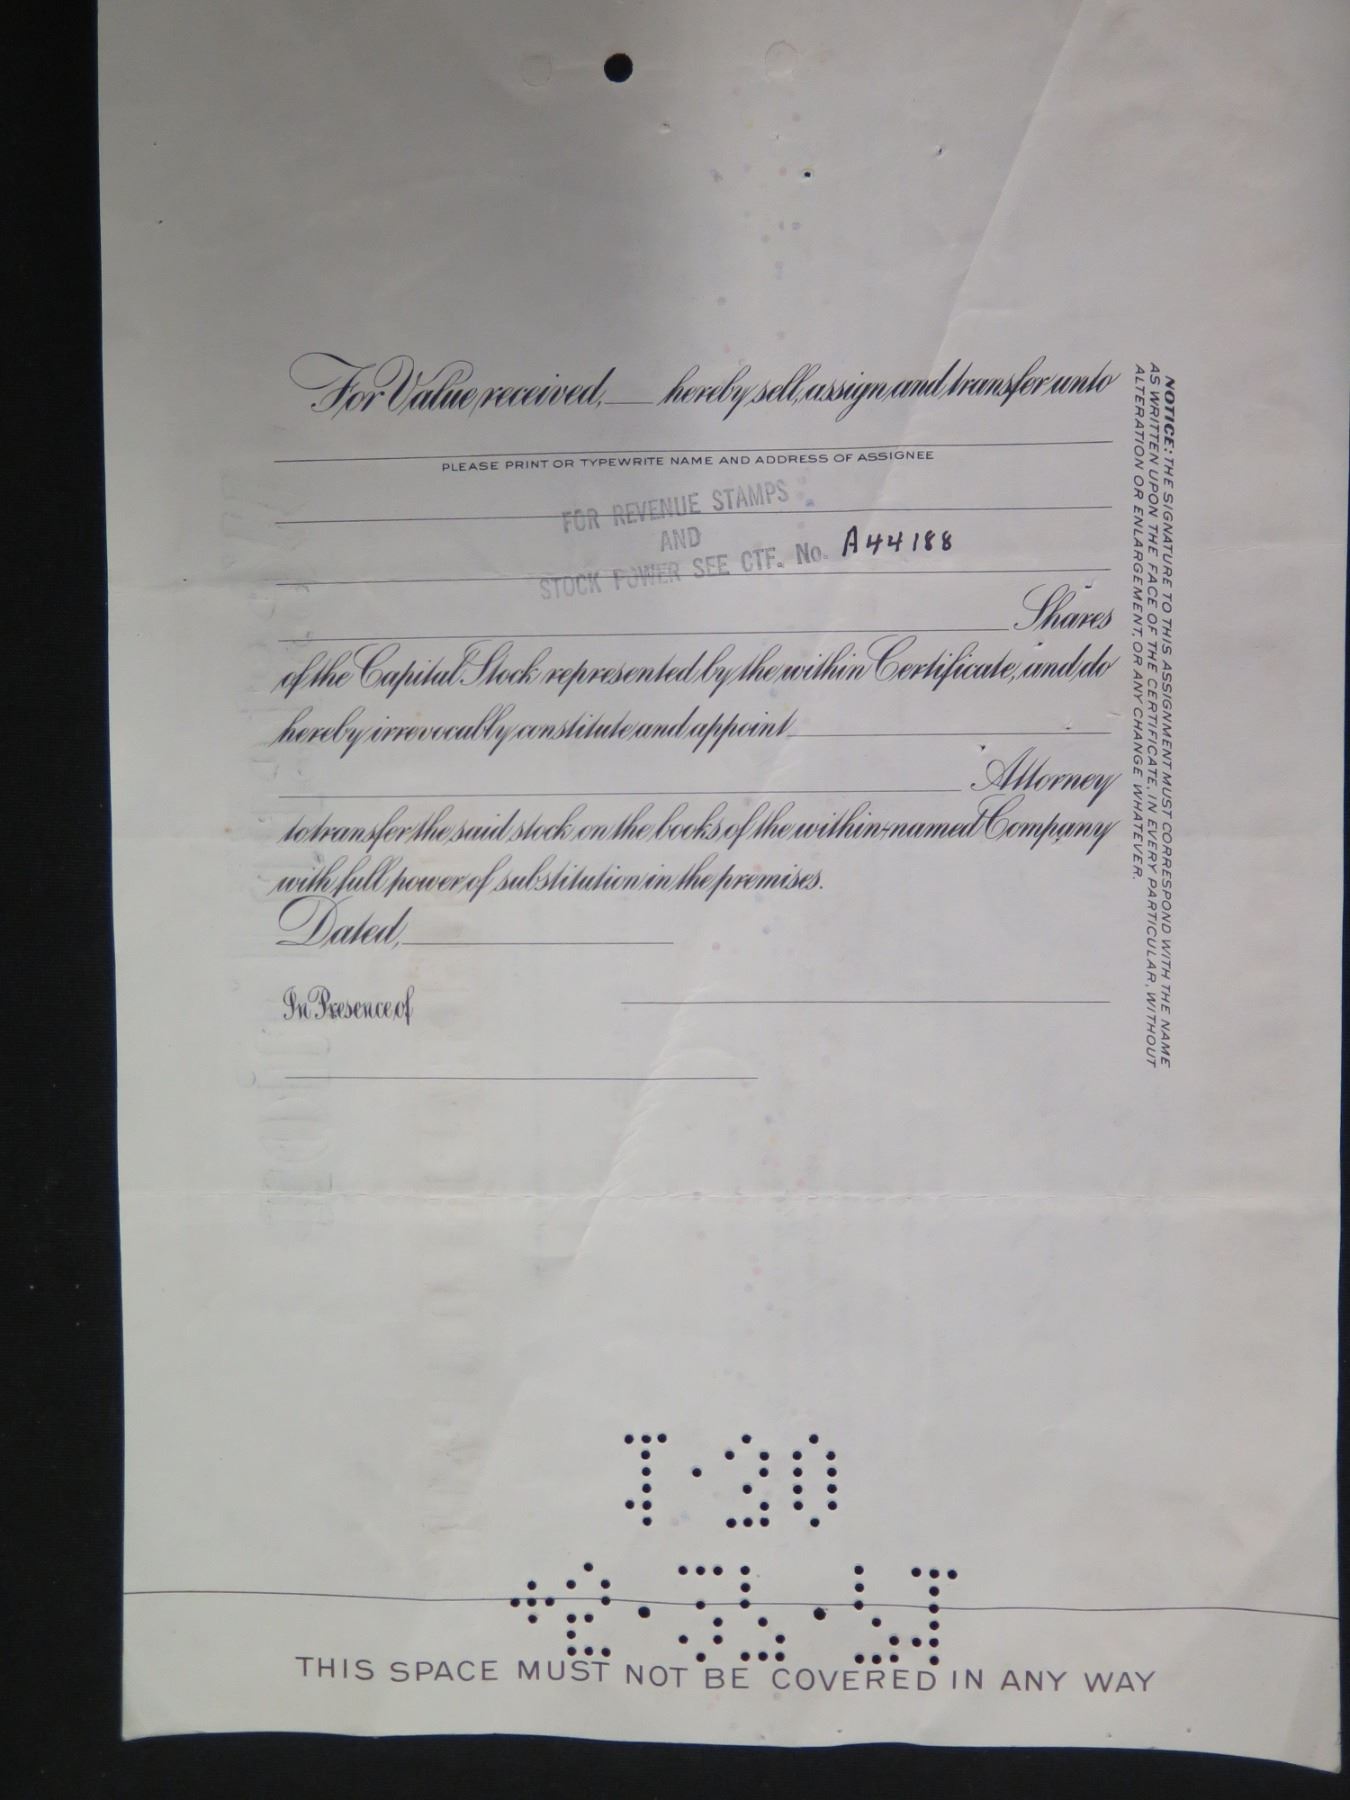 For Value received, ___ hereby sell, assign and transfer unto
PLEASE PRINT OR TYPEWRITE NAME AND ADDRESS OF ASSIGNEE
FOR REVENUE STAMPS
AND
STOCK POWER SEE CTF. No. A44188
Shares
of the Capital Stock represented by the within Certificate, and do
hereby irrevocably constitute and appoint
Attorney
to transfer the said stock on the books of the within-named Company
with full power of substitution in the premises.
Dated,
In Presence of
NOTICE: THE SIGNATURE TO THIS ASSIGNMENT MUST CORRESPOND WITH THE NAME
AS WRITTEN UPON THE FACE OF THE CERTIFICATE, IN EVERY PARTICULAR, WITHOUT
ALTERATION OR ENLARGEMENT, OR ANY CHANGE WHATEVER.
THIS SPACE MUST NOT BE COVERED IN ANY WAY